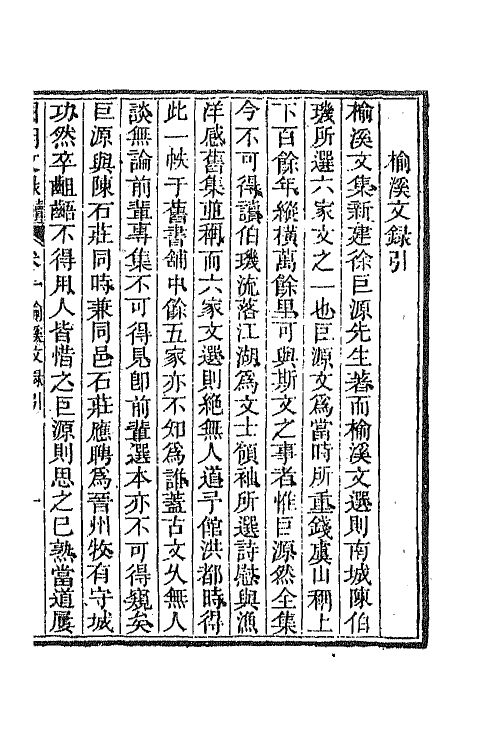 榆溪文録引
榆溪文集新建徐巨源先生著而榆溪文選則南城陳伯
璣所選六家文之一也巨源文爲當時所重錢虞山稱上
下百餘年縱橫萬餘里可與斯文之事者惟巨源然全集
今不可得讀伯璣流落江湖爲文士領袖所選詩慰與漁
洋感舊集並稱而六家文選則絶無人道予館洪都時得
此一帙于舊書舖中餘五家亦不知爲誰蓋古文久無人
談無論前輩專集不可得見卽前輩選本亦不可得窺矣
巨源與陳石莊同時兼同邑石莊應聘爲晉州牧有守城
功然卒齟齬不得用人皆惜之巨源則思之已熟當道屢
國朝文錄續編 卷一榆溪文録引 一